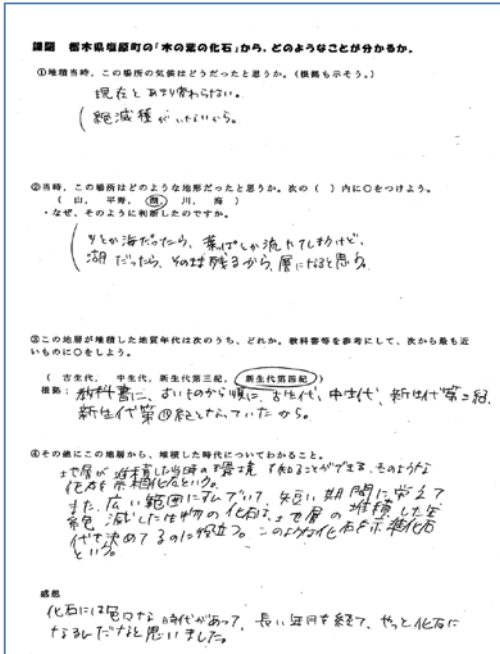 課題 栃木県塩原町の「木の葉の化石」から、どのようなことが分かるか。
①堆積当時、この場所の気候はどうだったと思うか。(根拠も示そう。)
現在とあまり変わらない。
(絶滅種がいないから。
②当時、この場所はどのような地形だったと思うか。次の( )内に○をつけよう。
( 山, 平野, 湖, 川, 海 )
・なぜ、そのように判断したのですか。
川とか海だったら、葉っぱとか流れてしまうけど、
湖だったら、そのまま残るから、層になると思う。
③この地層が堆積した地質年代は次のうち、どれか。教科書等を参考にして、次から最も近
いものに○をしよう。
( 古生代, 中生代, 新生代第三紀, 新生代第四紀 )
根拠: 教科書に、古いものから順に、古生代、中生代、新生代第三紀、
新生代第四紀となっていたから。
④その他にこの地層から、堆積した時代についてわかること。
地層が堆積した当時の環境を知ることができる、そのような
化石を示相化石という。
また、広い範囲にすんでいて、短い期間に栄えて
絶滅した生物の化石は、地層の堆積した年
代を決めるのに役立つ。このような化石を示準化石
という。
感想
化石には色々な時代があって、長い年月を経て、やっと化石に
なるんだなと思いました。